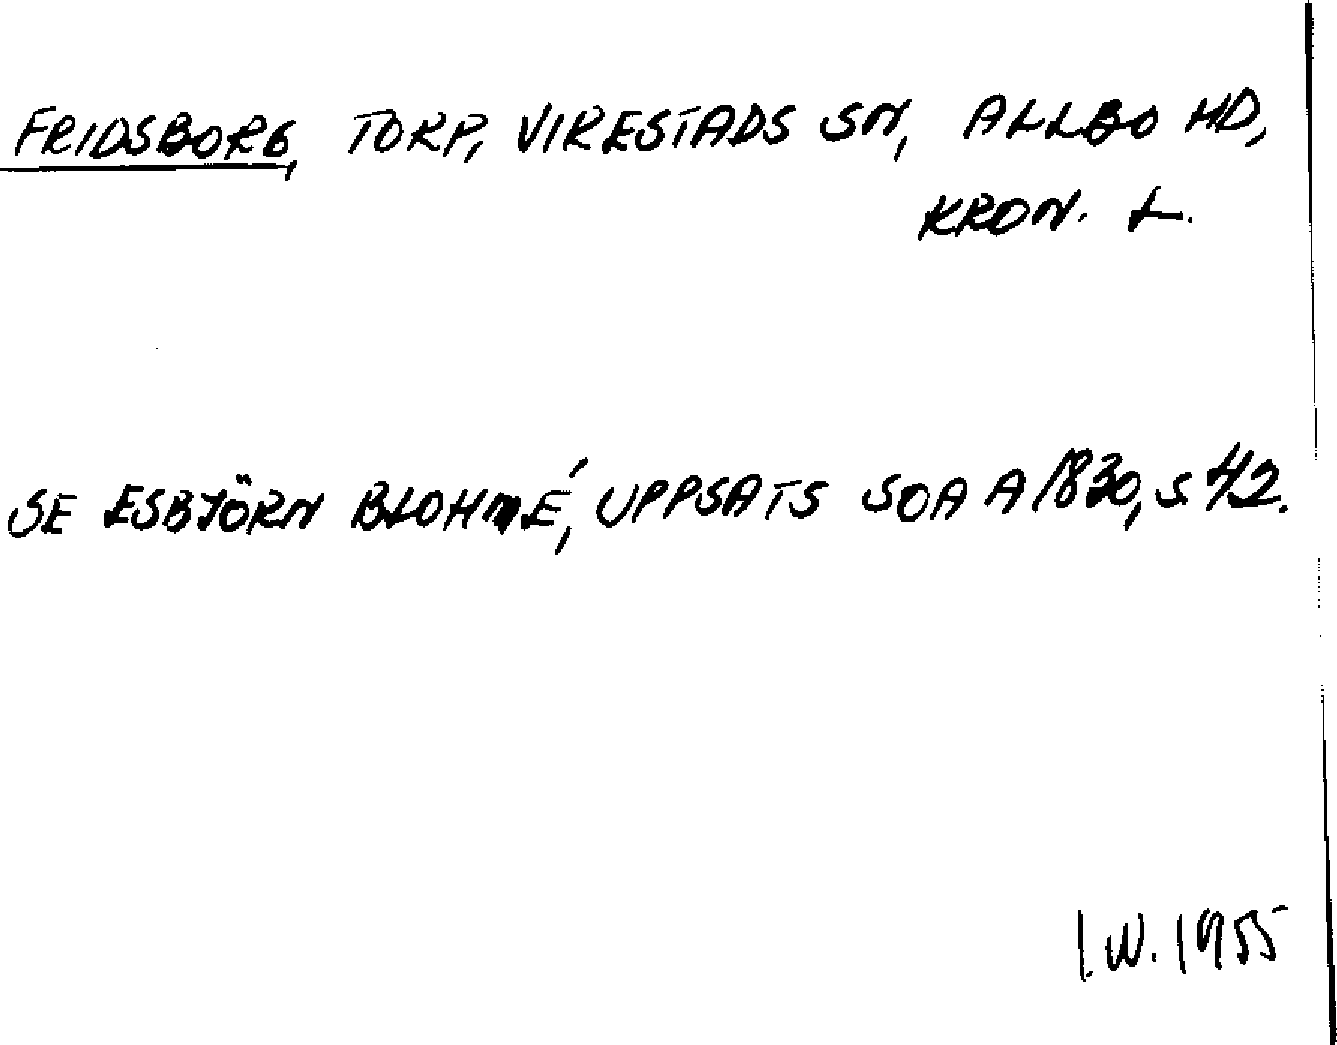 FRIDSBORG, TORP, VIRESTADS SN, ALLBO HD,
KRON. L.
SE ESBJÖRN BLOHMÉ, UPPSATS SOA A 1830, S. 42.
I.W. 1955